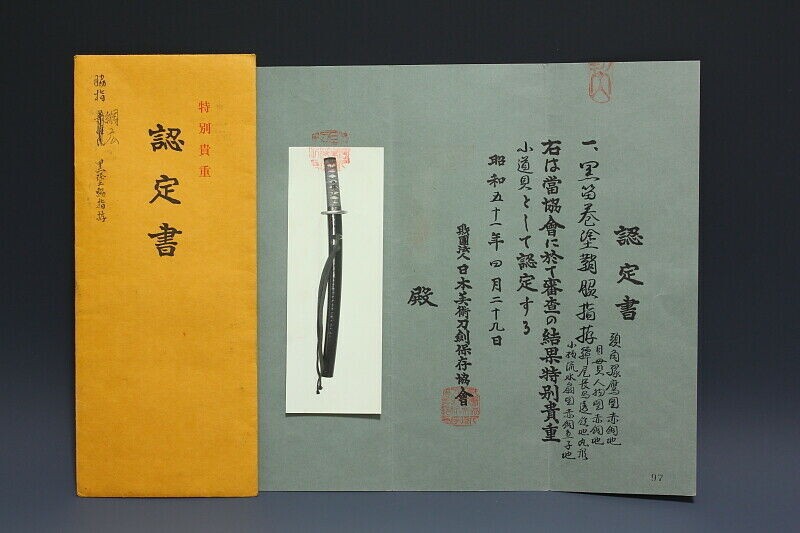 特別貴重
認定書
脇指
黒塗脇指拵
認定書
一、黒笛巻塗鞘脇指拵
頭角縁鷹図赤銅地
目貫人物図赤銅地
鐔尾長鳥透鉄地丸形
小柄流水扇図赤銅魚子地
右は當協會に於て審査の結果特別貴重
小道具として認定する
昭和五十一年四月二十九日
財團法人日本美術刀劍保存協會
殿
97